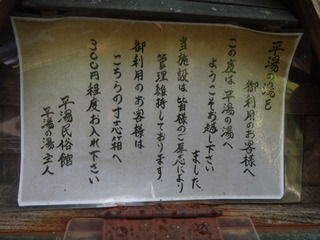 平湯の湯を
御利用のお客様へ
この度は平湯の湯へ
ようこそお越し下さい
ました
当施設は皆様のご厚志により
管理維持しております
御利用のお客様は
こちらの寸志箱へ
300円程度お入れ下さい
平湯民俗館
平湯の湯主人